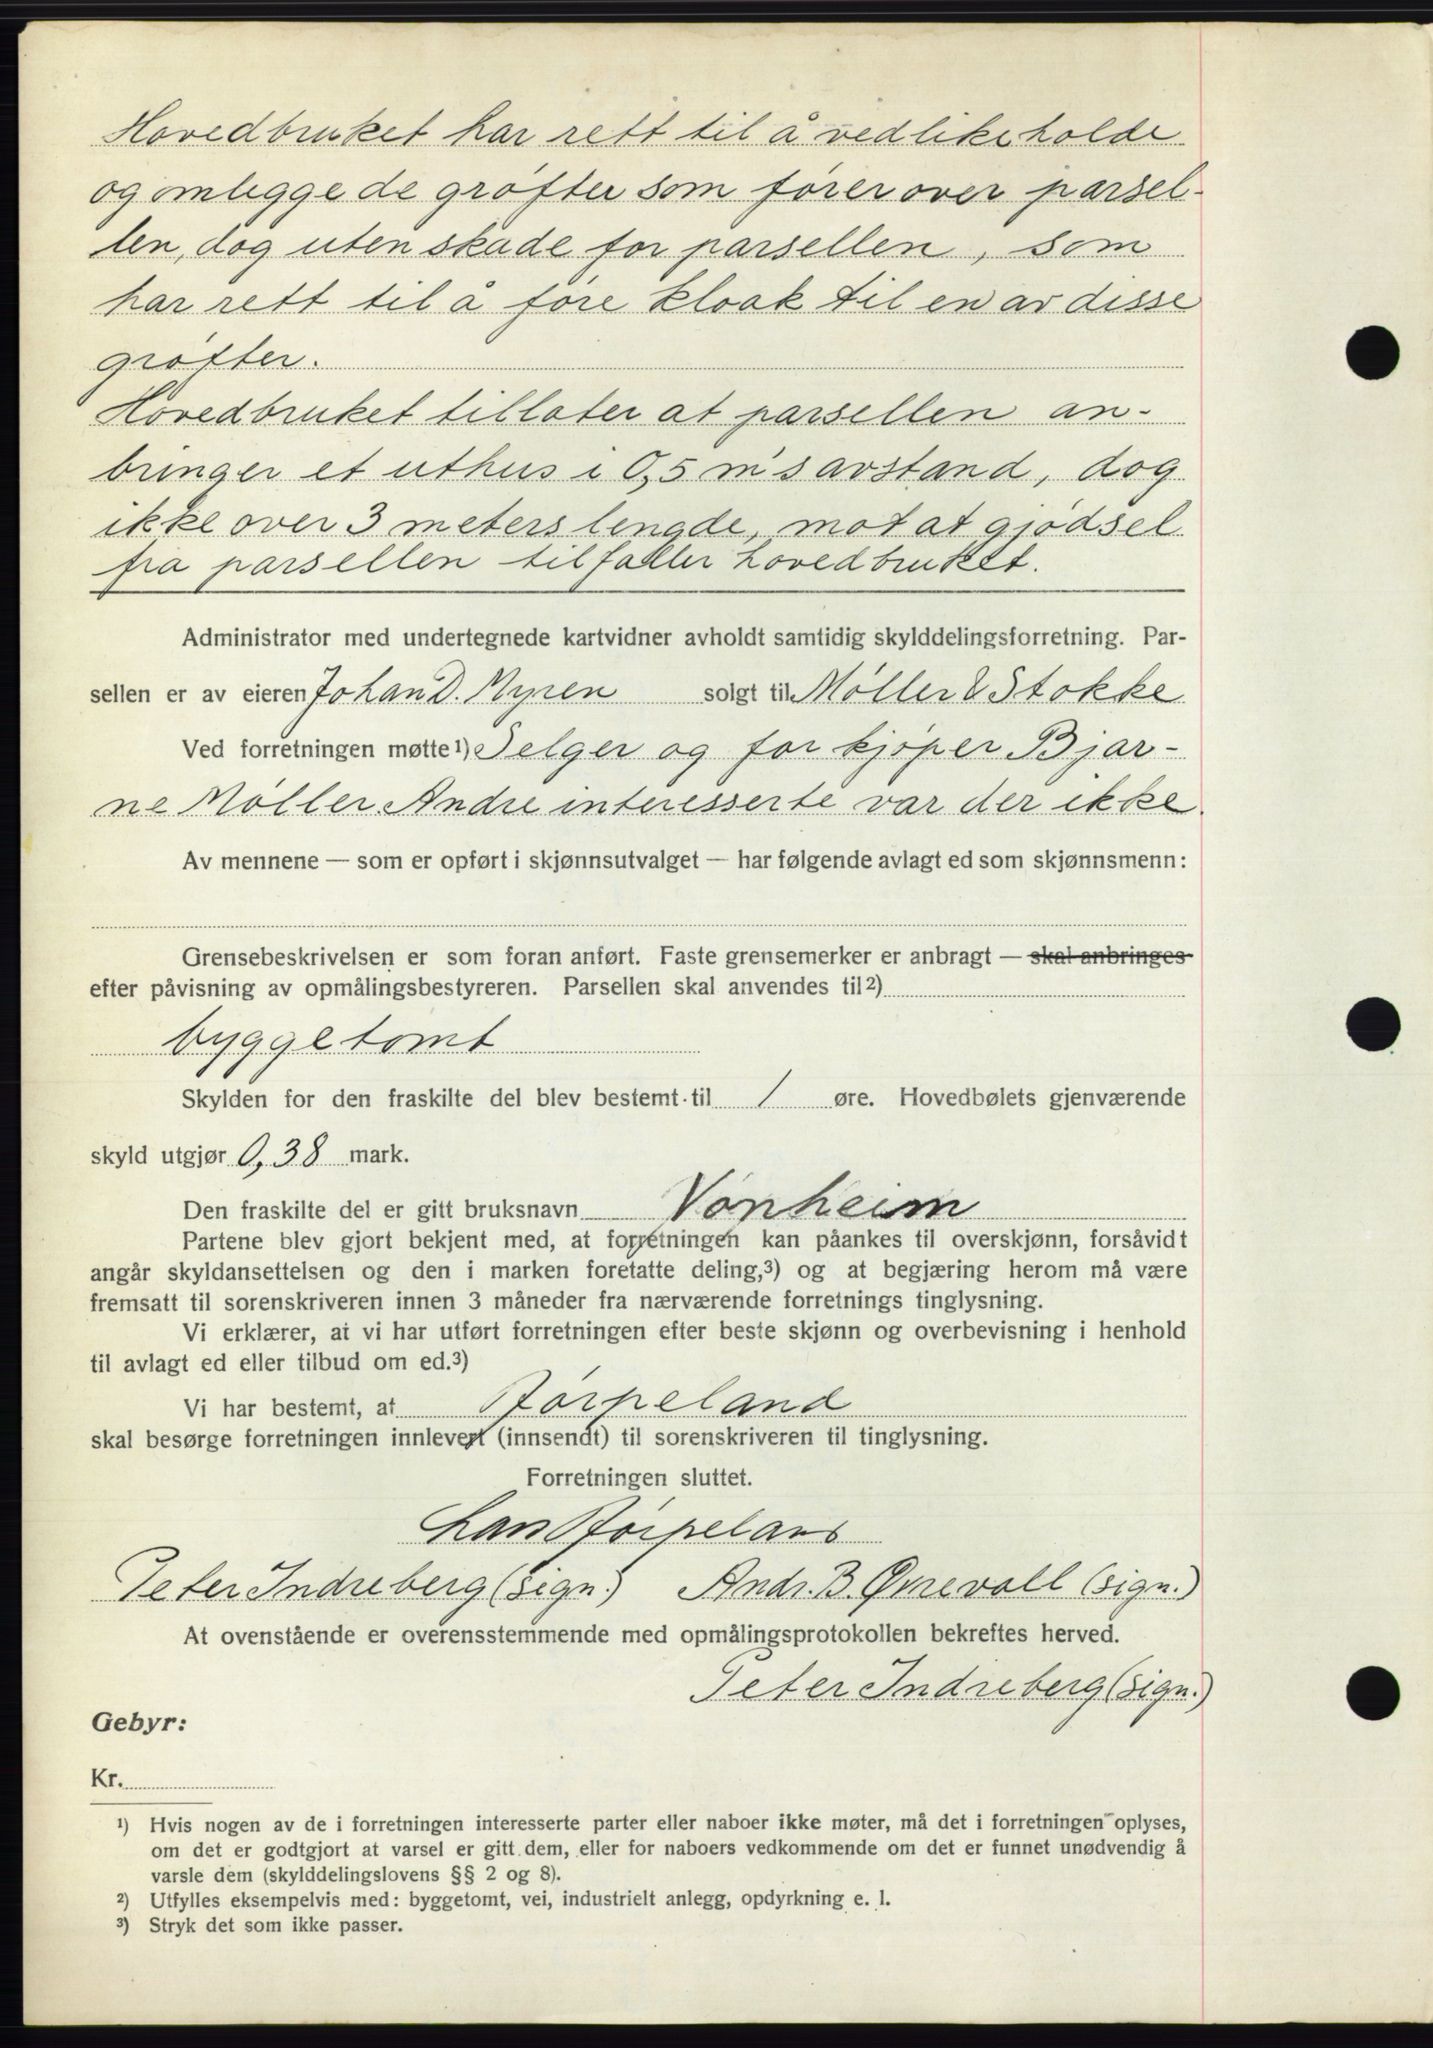 Hovedbruket har rett til å vedlikeholde
og omlegge de grøfter som fører over parsel-
len, dog uten skade for parsellen, som
har rett til å føre kloak til en av disse
grøfter.
Hovedbruket tillater at parsellen an-
bringer et uthus i 0,5 m's avstand, dog
ikke over 3 meters lengde, mot at gjødsel
fra parsellen tilfaller hovedbruket.
Administrator med undertegnede kartvidner avholdt samtidig skylddelingsforretning. Par-
sellen er av eieren Johan D. Myren solgt til Møller & Stokke
Ved forretningen møtte 1) Selger og for kjøper Bjar-
ne Møller. Andre interesserte var der ikke.
Av mennene — som er opført i skjønnsutvalget — har følgende avlagt ed som skjønnsmenn:
Grensebeskrivelsen er som foran anført. Faste grensemerker er anbragt — skal anbringes
efter påvisning av opmålingsbestyreren. Parsellen skal anvendes til 2)
byggetomt
Skylden for den fraskilte del blev bestemt til 1 øre. Hovedbølets gjenværende
skyld utgjør 0,38 mark.
Den fraskilte del er gitt bruksnavn Vonheim
Partene blev gjort bekjent med, at forretningen kan påankes til overskjønn, forsåvidt
angår skyldansettelsen og den i marken foretatte deling,3) og at begjæring herom må være
fremsatt til sorenskriveren innen 3 måneder fra nærværende forretnings tinglysning.
Vi erklærer, at vi har utført forretningen efter beste skjønn og overbevisning i henhold
til avlagt ed eller tilbud om ed.3)
Vi har bestemt, at Jørpeland
skal besørge forretningen innlevert (innsendt) til sorenskriveren til tinglysning.
Forretningen sluttet.
Lars Jørpeland
Peter Indreberg (sign.) Andr. B. Øvrevoll (sign.)
At ovenstående er overensstemmende med opmålingsprotokollen bekreftes herved.
Peter Indreberg (sign.)
Gebyr:
Kr.
1) Hvis nogen av de i forretningen interesserte parter eller naboer ikke møter, må det i forretningen oplyses,
om det er godtgjort at varsel er gitt dem, eller for naboers vedkommende om det er funnet unødvendig å
varsle dem (skylddelingslovens §§ 2 og 8).
2) Utfylles eksempelvis med: byggetomt, vei, industrielt anlegg, opdyrkning e. l.
3) Stryk det som ikke passer.